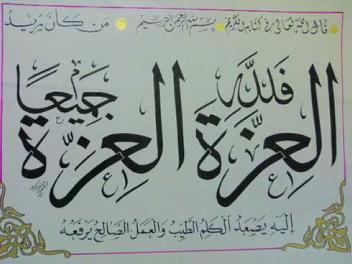 قال الله تعالى في كتابه الكريم بسم الله الرحمن الرحيم من كان يريد
العزة فلله العزة جميعا
إليه يصعد الكلم الطيب والعمل الصالح يرفعه